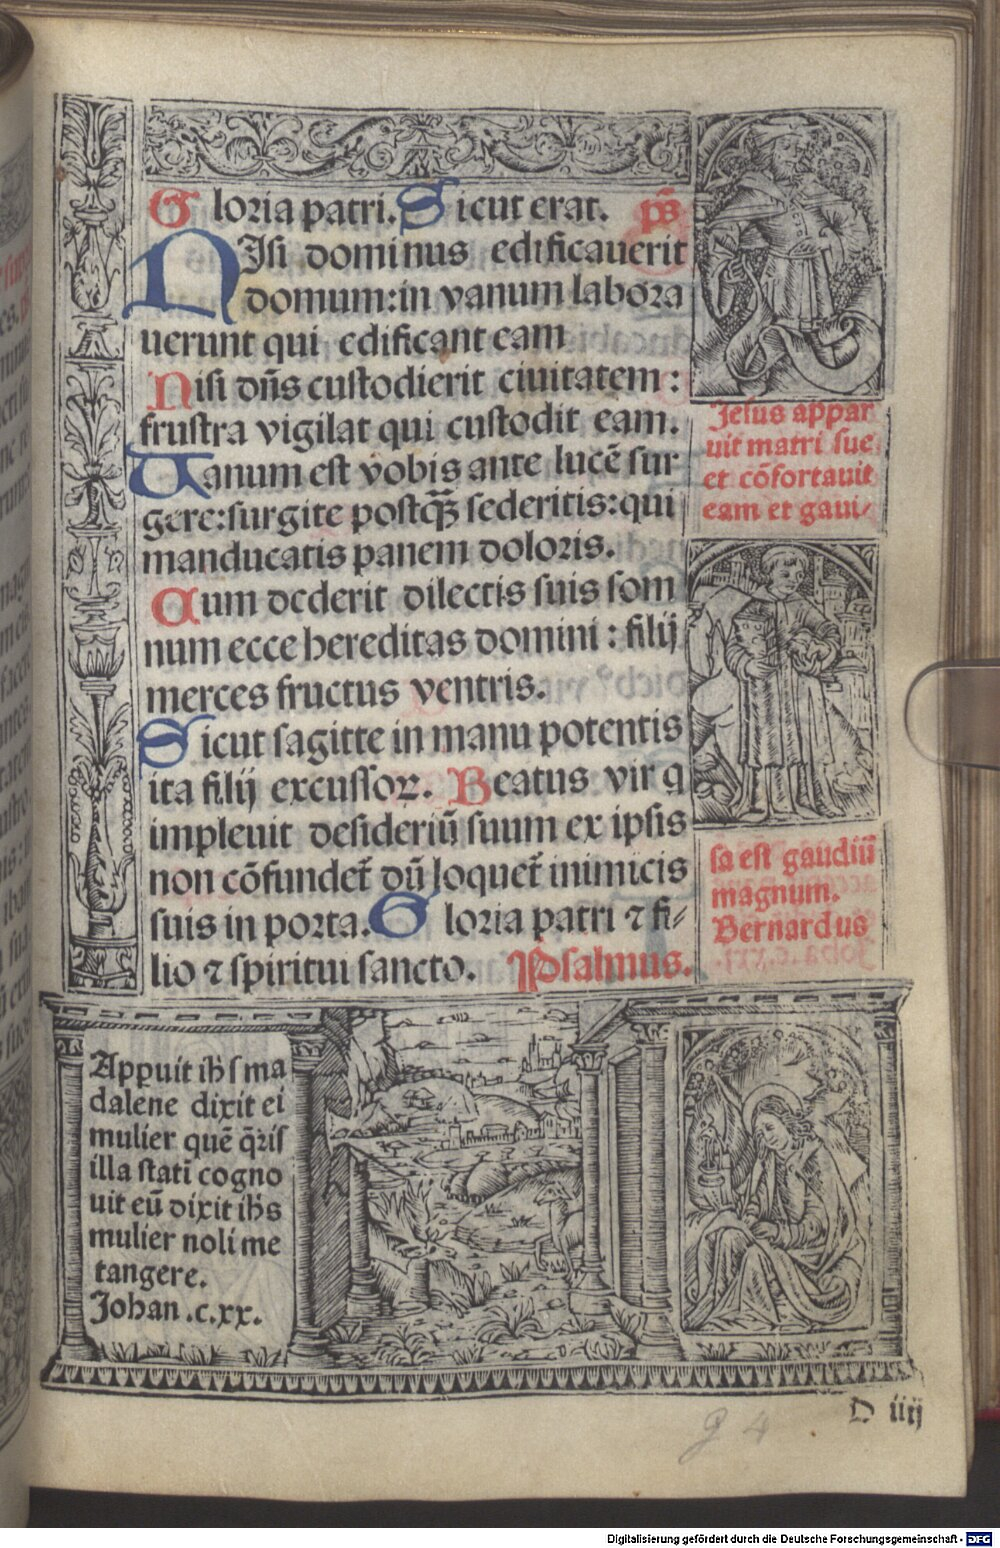 Gloria patri. Sicut erat. ps̄
NIsi dominus edificauerit
domum: in vanum labora
uerunt qui edificant eam
Nisi dn̄s custodierit ciuitatem:
frustra vigilat qui custodit eam.
Uanum est vobis ante lucē sur
gere: surgite postq̄ꝫ sederitis: qui
manducatis panem doloris.
Cum dederit dilectis suis som
num ecce hereditas domini: filij
merces fructus ventris.
Sicut sagitte in manu potentis
ita filij excussoꝝ. Beatus vir q
impleuit desideriū suum ex ipsis
non cōfundet̄ dū loquet̄ inimicis
suis in porta. Gloria patri ⁊ fi⸗
lio ⁊ spiritui sancto. Psalmus.
Jesus appar
uit matri sue
et cōfortauit
eam et gaui⸗
sa est gaudiū
magnum.
Bernardus
Appuit ih̄s ma
dalene dixit ei
mulier quē q̄ris
illa stati cogno
uit eū dixit ih̄s
mulier noli me
tangere.
Johan .c.xx.
D iiij
g 4
Digitalisierung gefördert durch die Deutsche Forschungsgemeinschaft - DFG